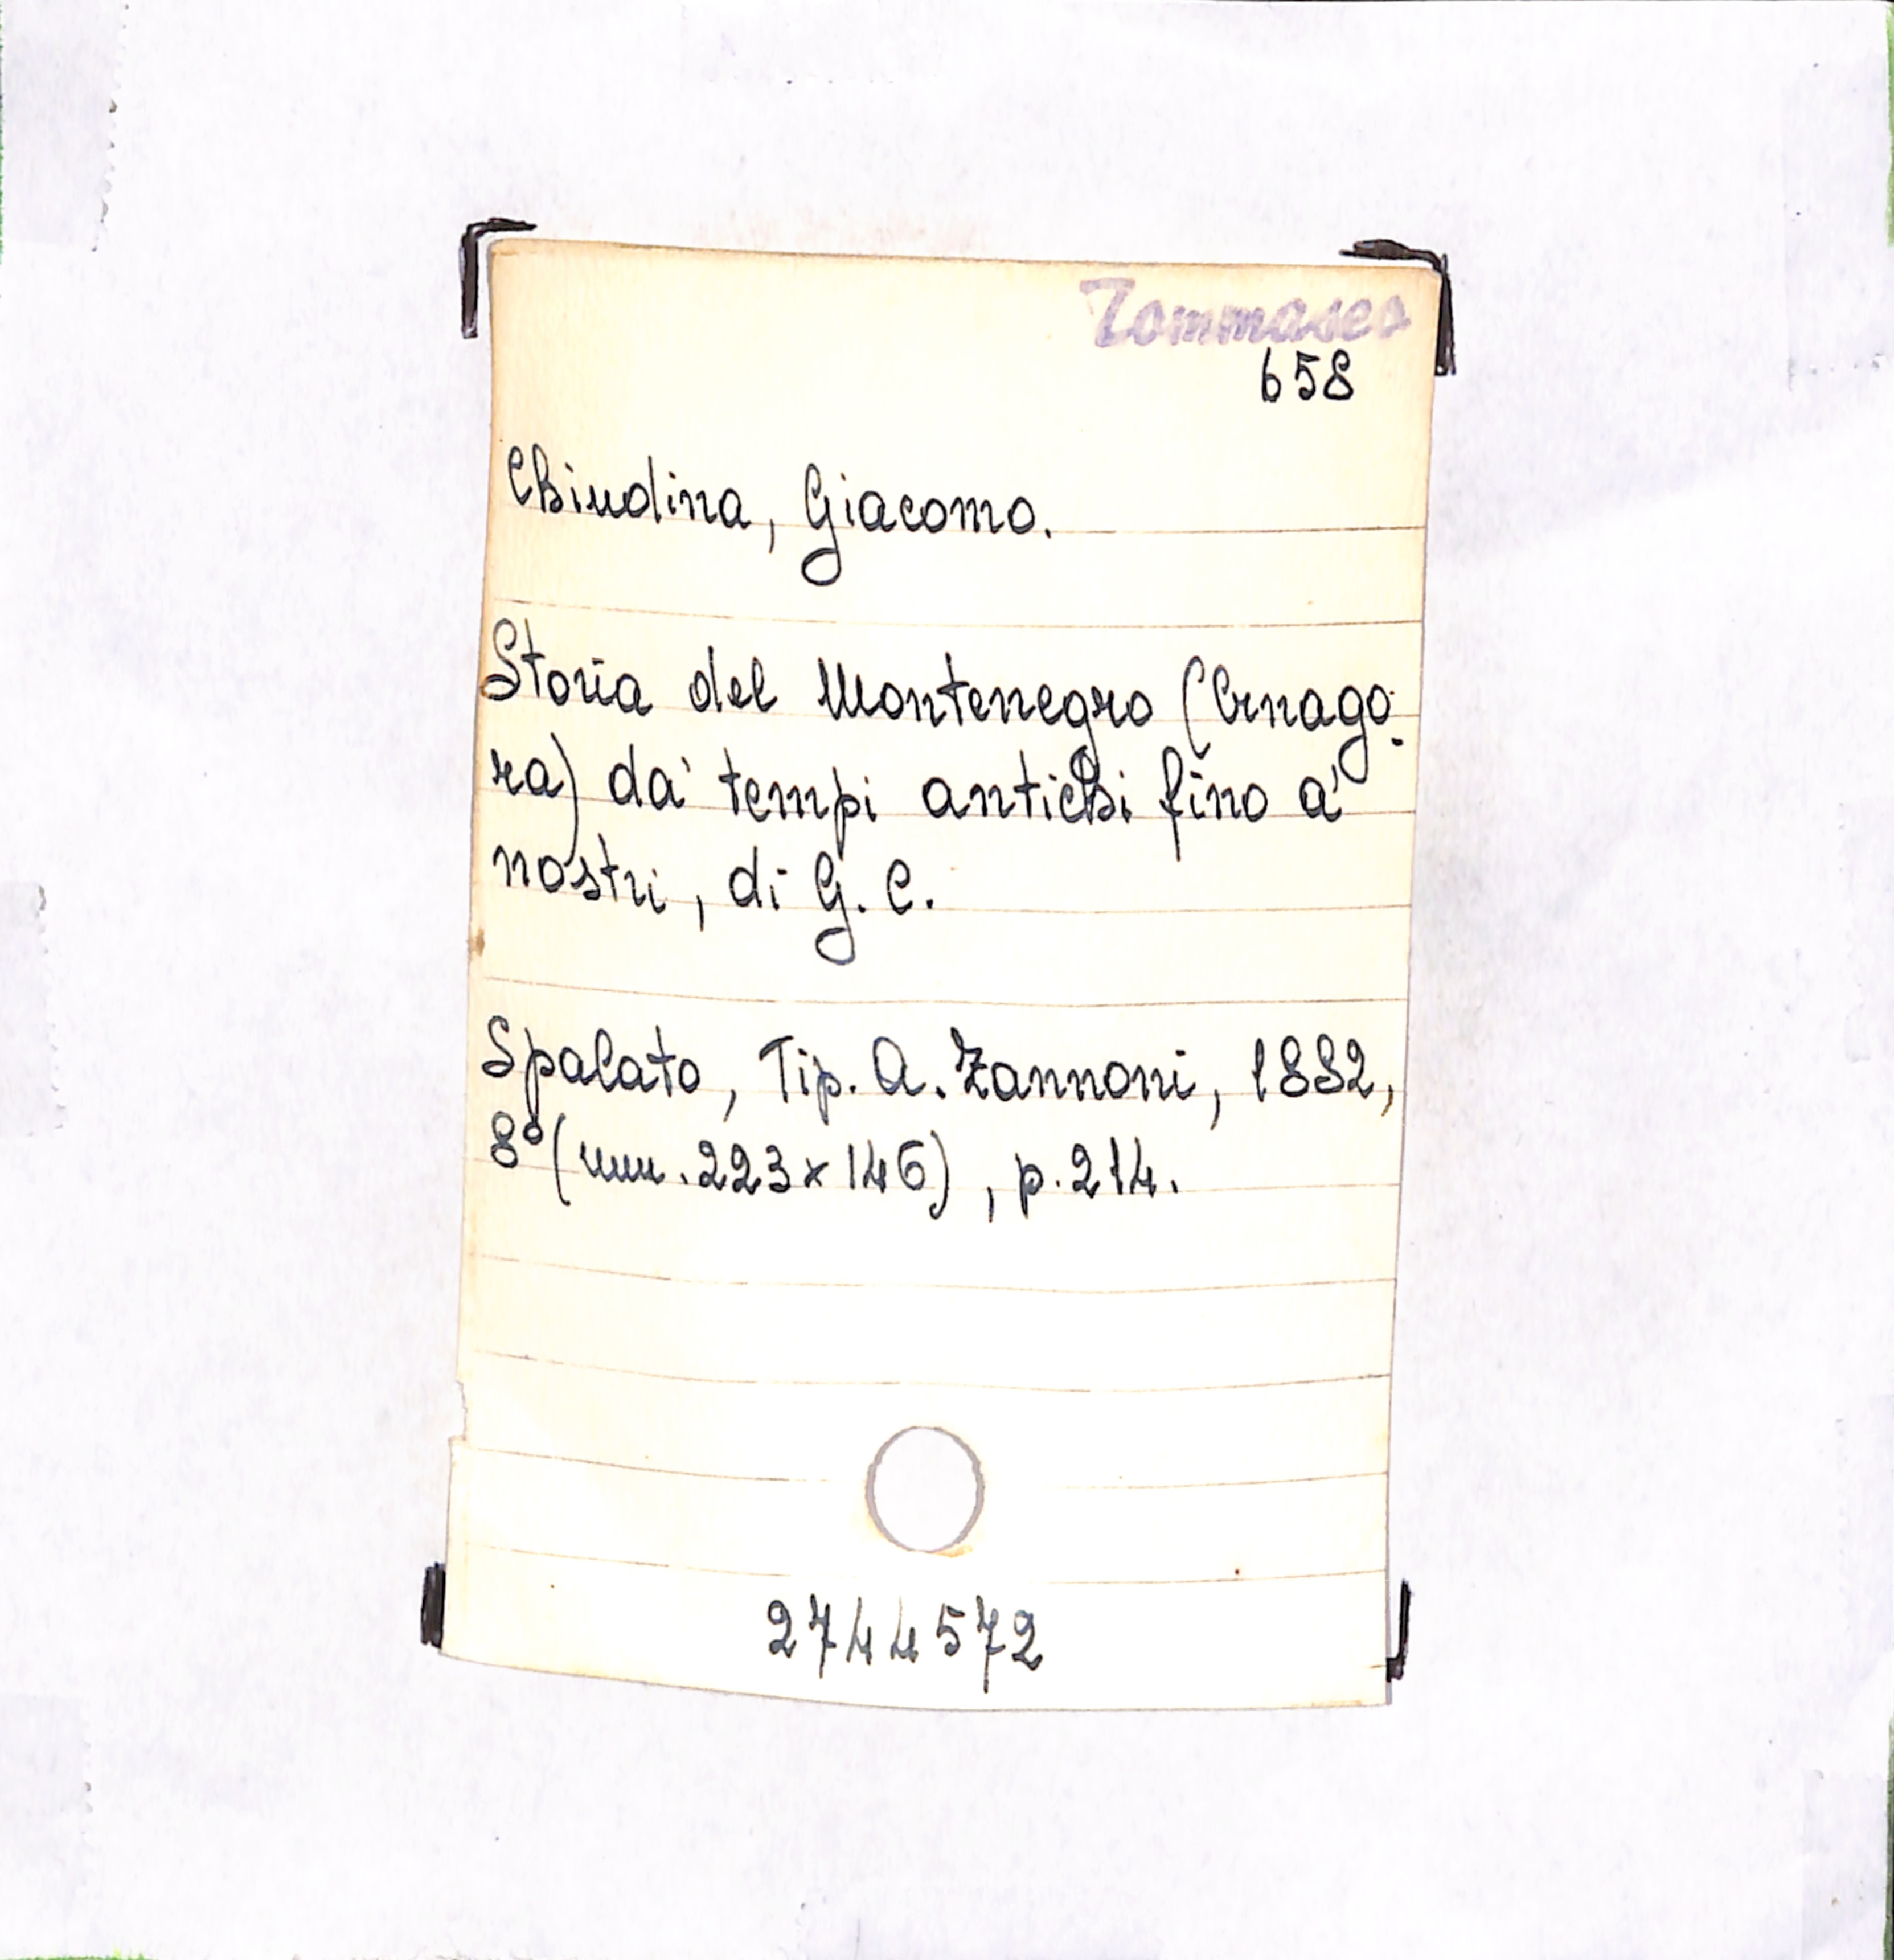 Tommaseo
658
Chiudina, Giacomo.
Storia del Montenegro (Crnago-
ra) da' tempi antichi fino a'
nostri, di G. C.
Spalato, Tip. A. Zannoni, 1882,
8° (mm. 223 x 146), p. 214.
2744572